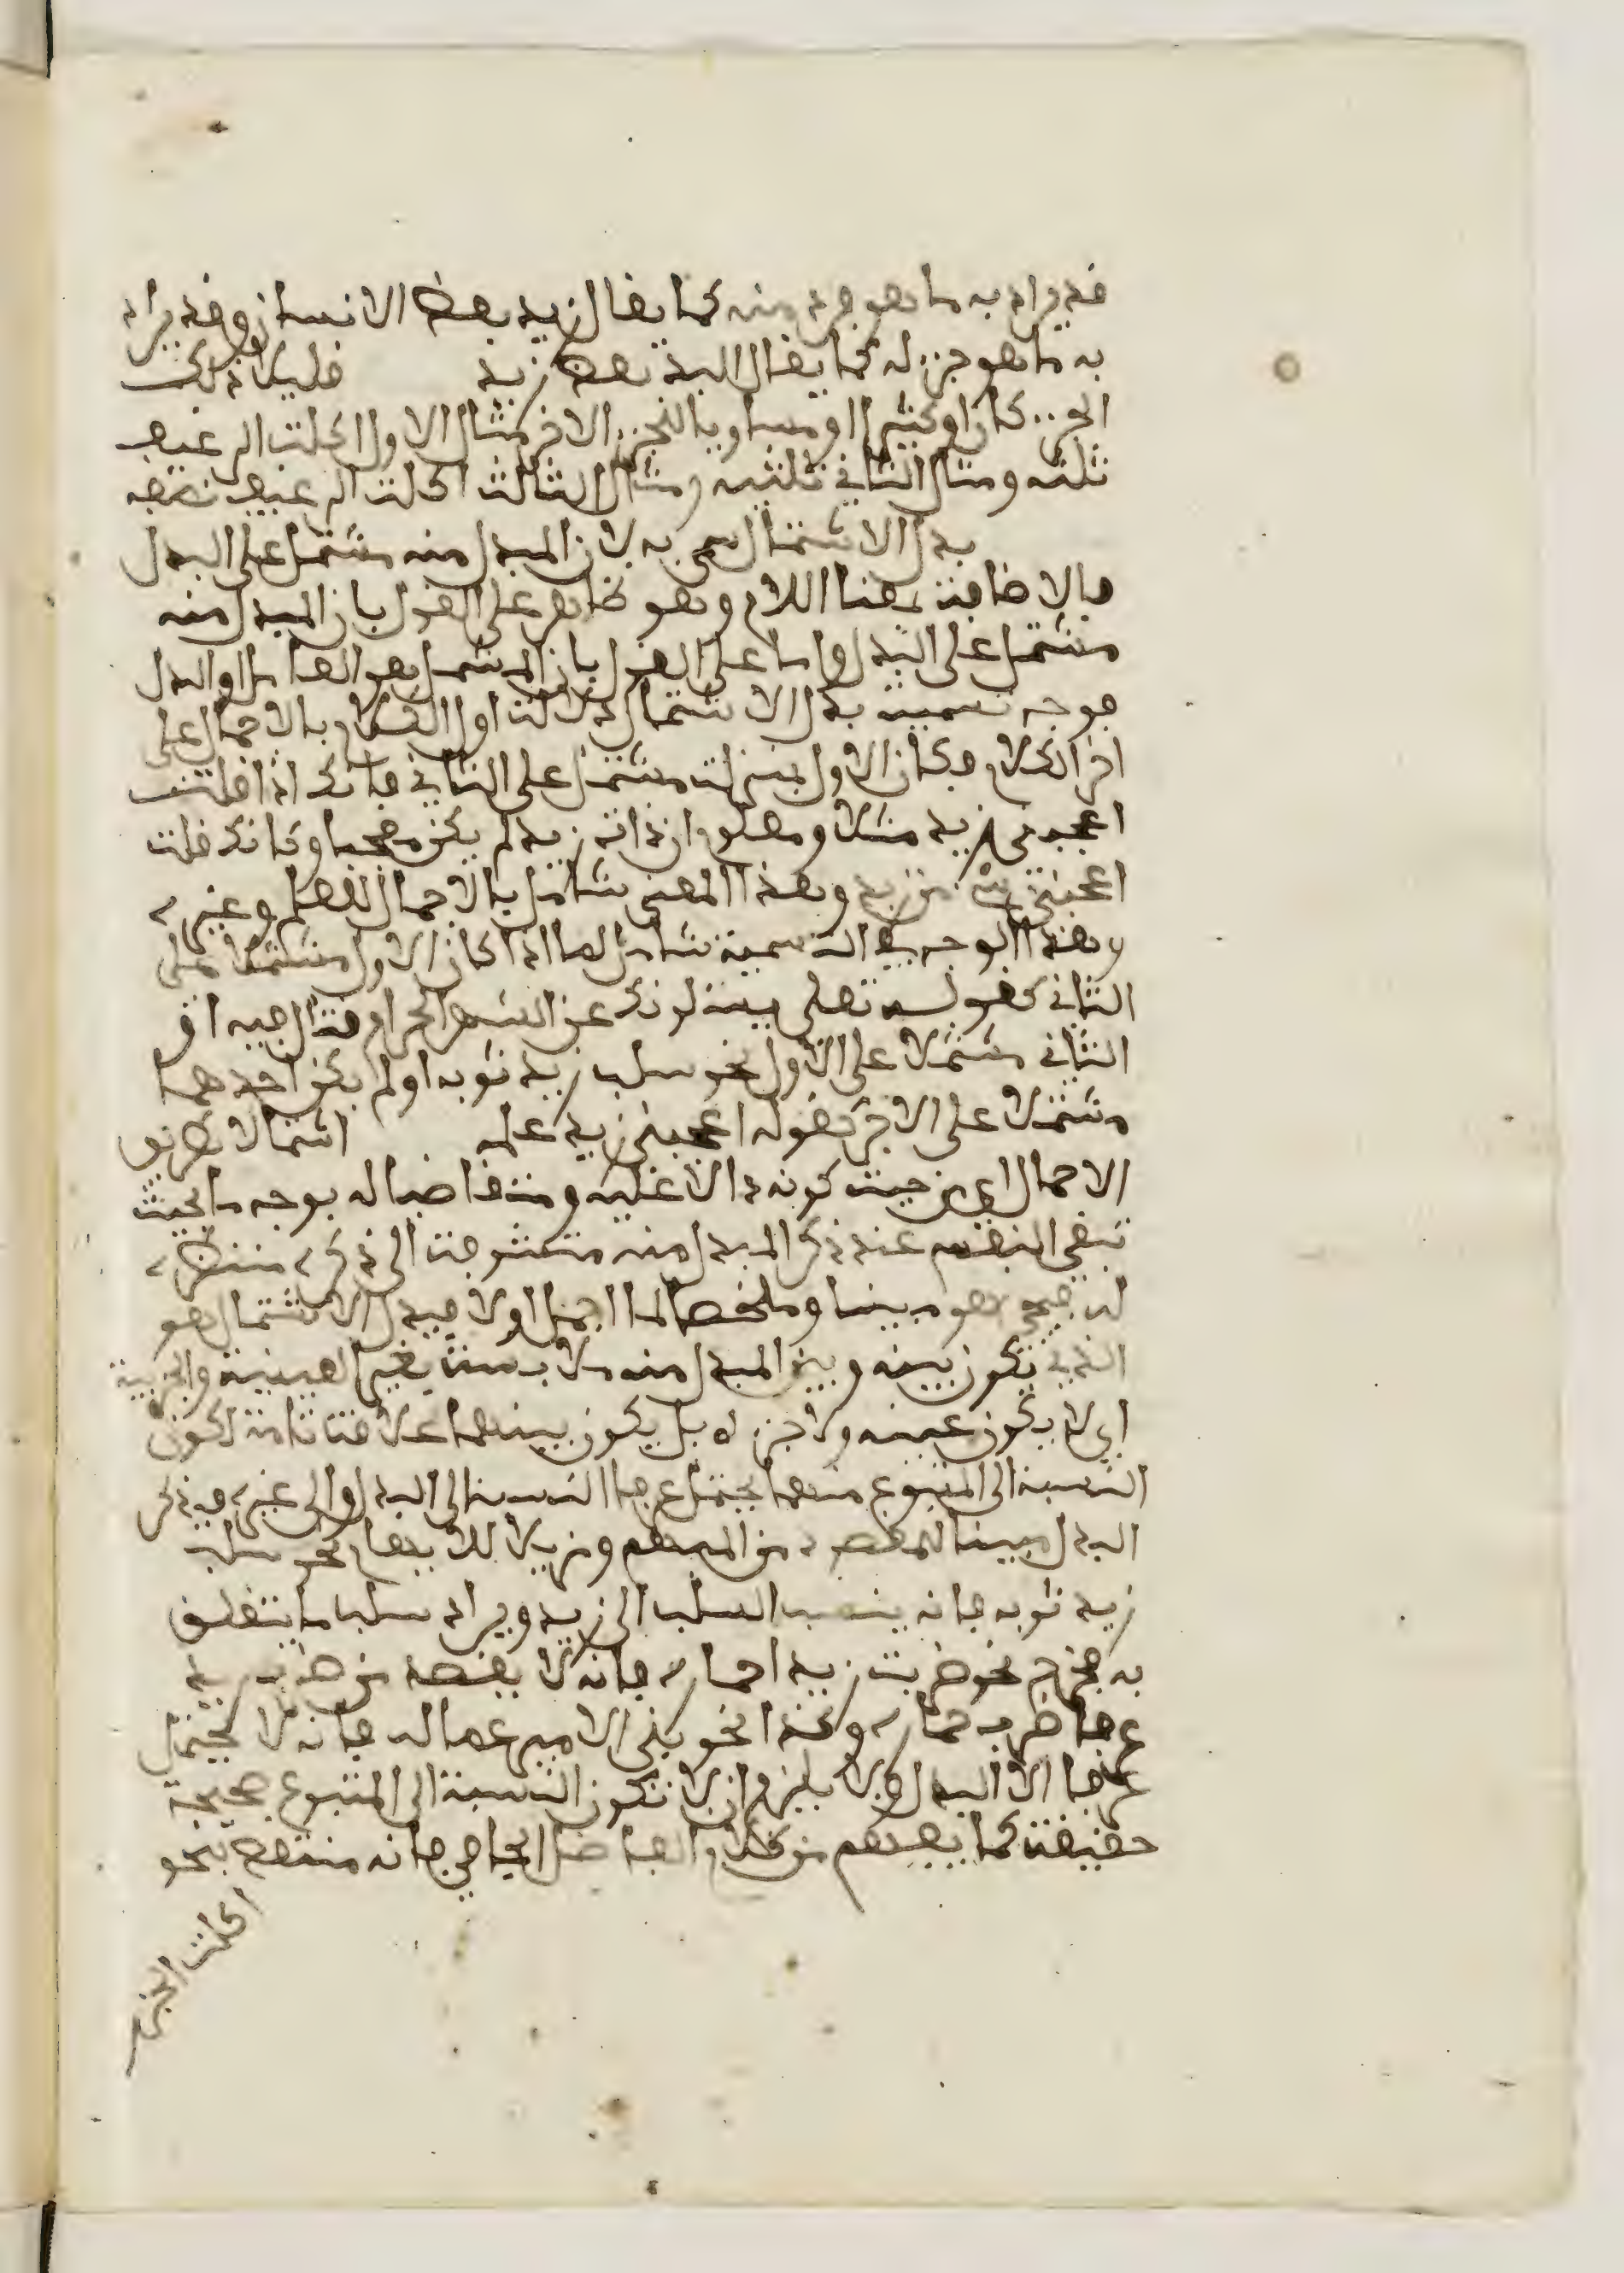 قد يراد به ما هو فرد منه كما يقال زيد بعض الانسان وقد يراد
به ما هو جزء له كما يقال اليد بعض زيد قليلا ذلك
الجزء كان او كثيرا او مساويا للجزء الاخر مثال الاول اكلت الرغيف
ثلثه ومثال الثاني ثلثيه ومثال الثالث اكلت الرغيف نصفه
بدل الاشتمال سمي به لان المبدل منه مشتمل على البدل
فالاضافة بمعنا اللام وهو ظاهر على القول بان المبدل منه
مشتمل على البدل واما على القول بان المشتمل هو العامل او البدل
فوجه تسمية بدل الاشتمال دلالة اول الكلام بالاجمال على
اخر الكلام فكان الاول بمنزلة مشتمل على الثاني فانك اذا قلت
اعجبني زيد مثلا ومعلوم ان ذات زيد لم يكن معجبا وكانك قلت
اعجبني شيء من زيد وهذا المعنى شامل بالاجمال للعلم وغيره
وهذا الوجه في التسمية شامل لما اذا كان الاول مشتملا على
الثاني كقوله تعلى يسئلونك عن الشهر الحرام قتال فيه او
الثاني مشتملا على الاول نحو سلب زيد ثوبه او لم يكن احدهما
مشتملا على الاخر كقوله اعجبني زيد علمه اشتمالا بطريق
الاجمال اي من حيث كونه دالا عليه ومتقاضيا له بوجه ما بحيث
تبقى النفس عند ذكر المبدل منه متشوقة الى ذكره منتظرة
له فيجيء هو مبينا وملخصا لما اجمل اولا فبدل الاشتمال هو
الذي تكون بينه وبين المبدل منه ملابسة بغير العينية والجزئية
اي لا يكون عينه ولا جزءه بل يكون بينهما علاقة تامة لكون
النسبة الى المتبوع منهما يحتمل عرفا النسبة الى البدل والى غيره فيذكر
البدل مبينا للمقصود من المبهم ومزيلا للابهام نحو سلب
زيد ثوبه فانه ينسب السلب الى زيد ويراد سلب ما يتعلق
به فخرج نحو ضربت زيدا حماره فانه لا يقصد من ضرب زيد
عرفا ضرب حماره وكذا نحو بنى الامير عماله فانه لا يحتمل
عرفا الا البدل ولا يلزم ان لا تكون النسبة الى المتبوع صحيحة
حقيقة كما يفهم من كلام الفاضل الجامي فانه منتقض بنحو
اكلت الخبز